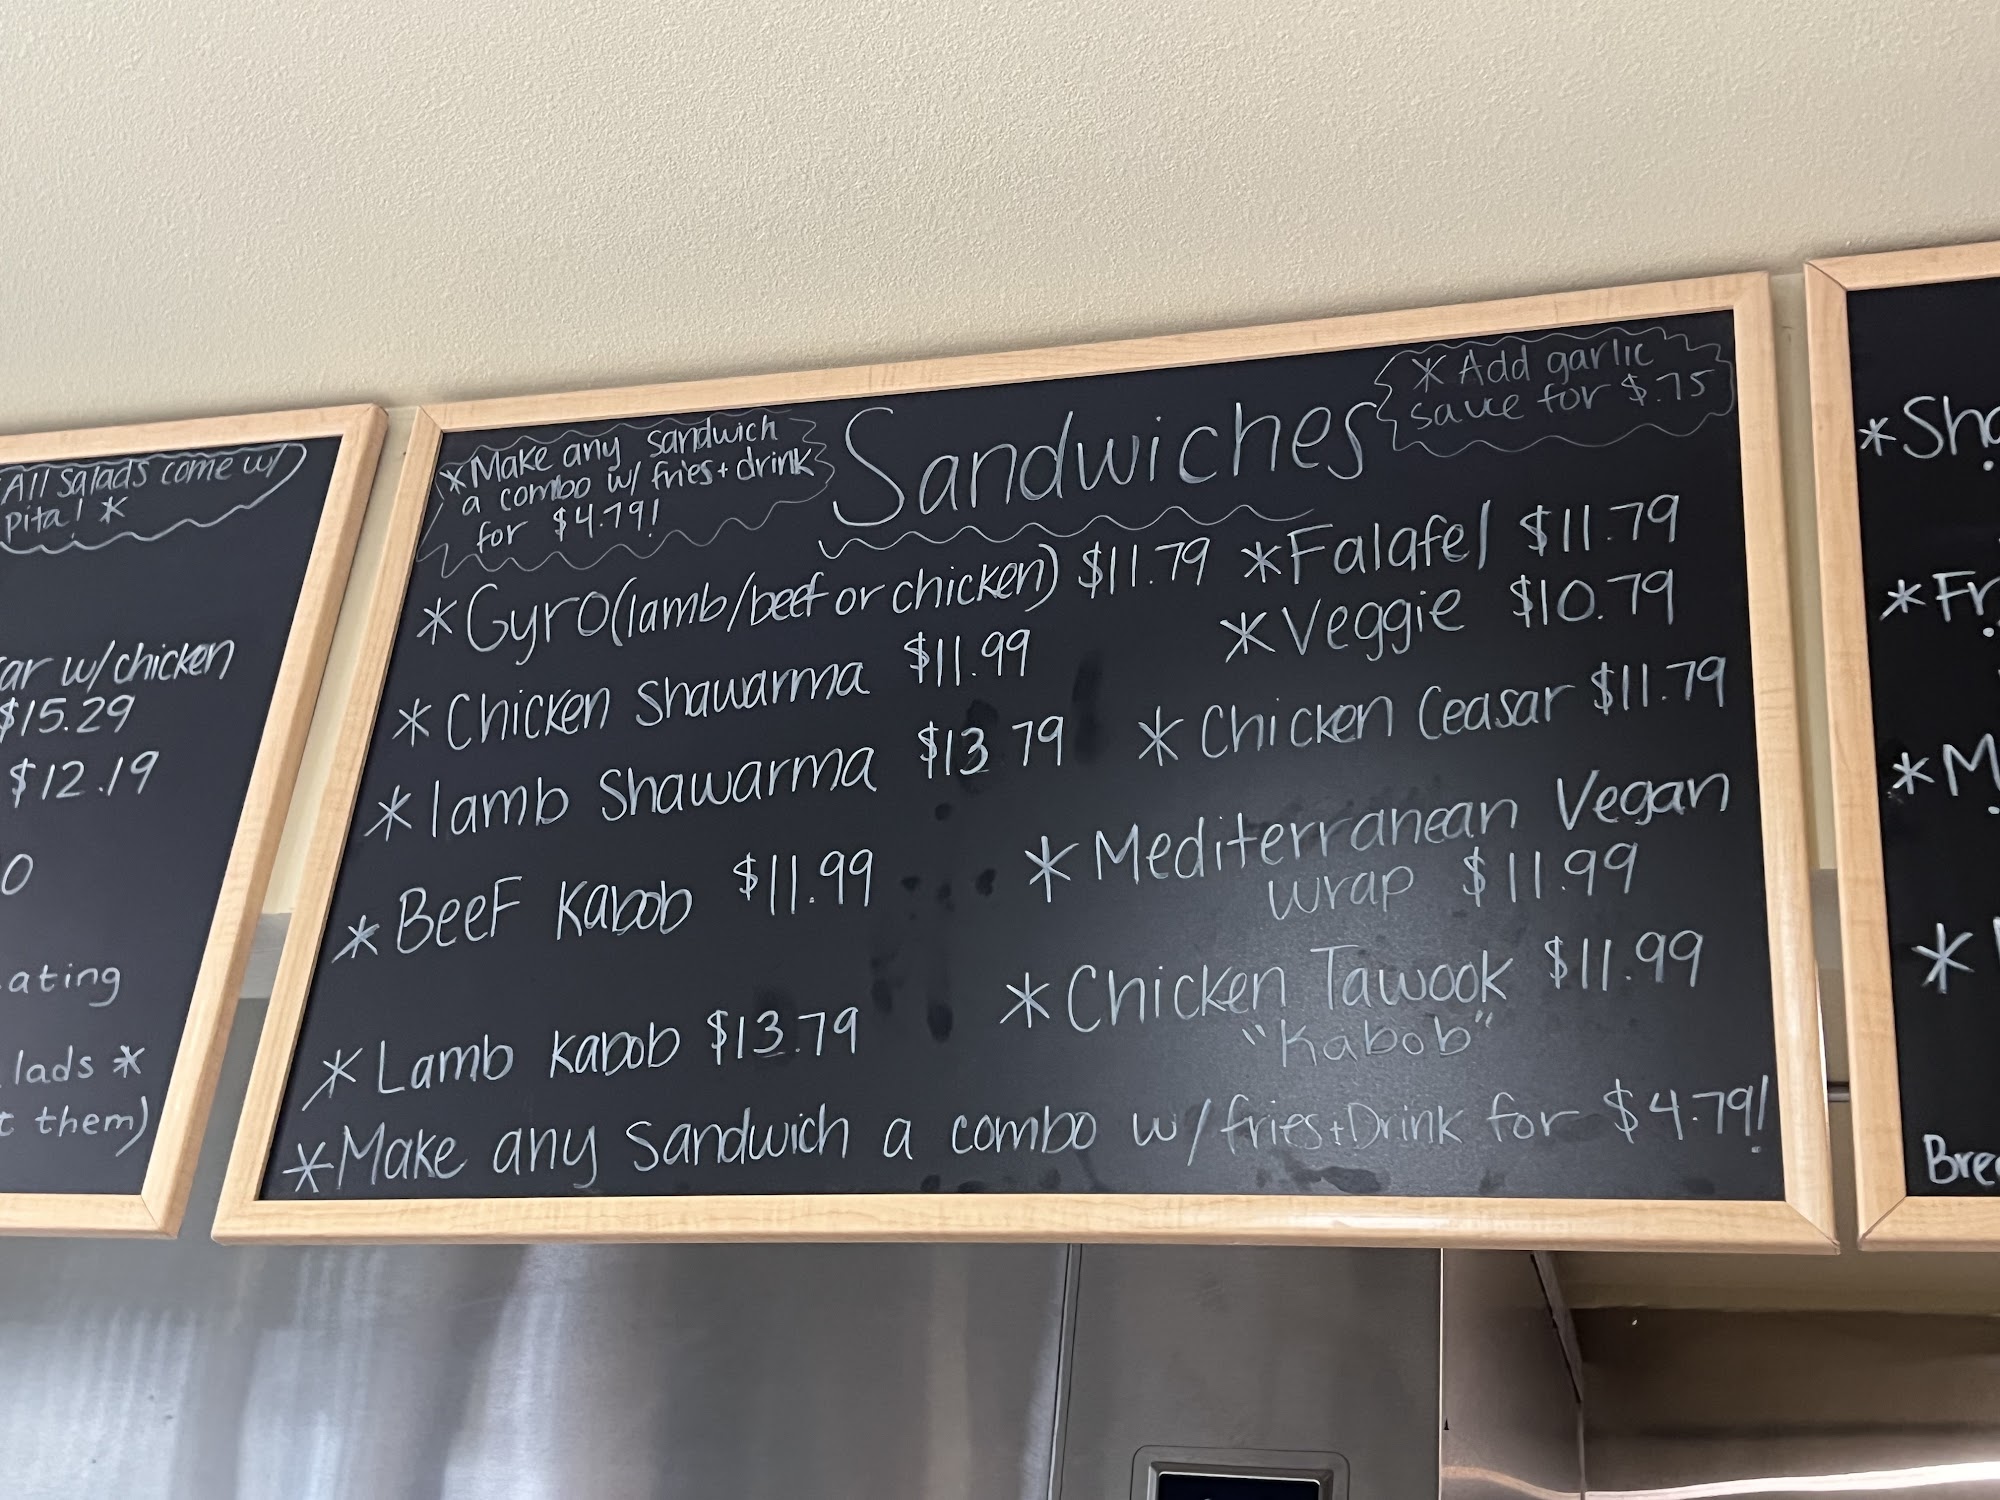 All salads come w/
pita! *
w/chicken
$15.29
$12.19
t them)
*Make any sandwich
a combo w/ fries + drink
for $4.79!
Sandwiches
* Add garlic
sauce for $.75
*Gyro(lamb/beef or chicken) $11.79
*Chicken Shawarma $11.99
*lamb Shawarma $13.79
*Beef Kabob $11.99
*Lamb Kabob $13.79
*Falafel $11.79
*Veggie $10.79
*Chicken Ceasar $11.79
*Mediterranean Vegan
wrap $11.99
*Chicken Tawook $11.99
"Kabob"
*Make any Sandwich a combo w/fries+Drink for $4.79!